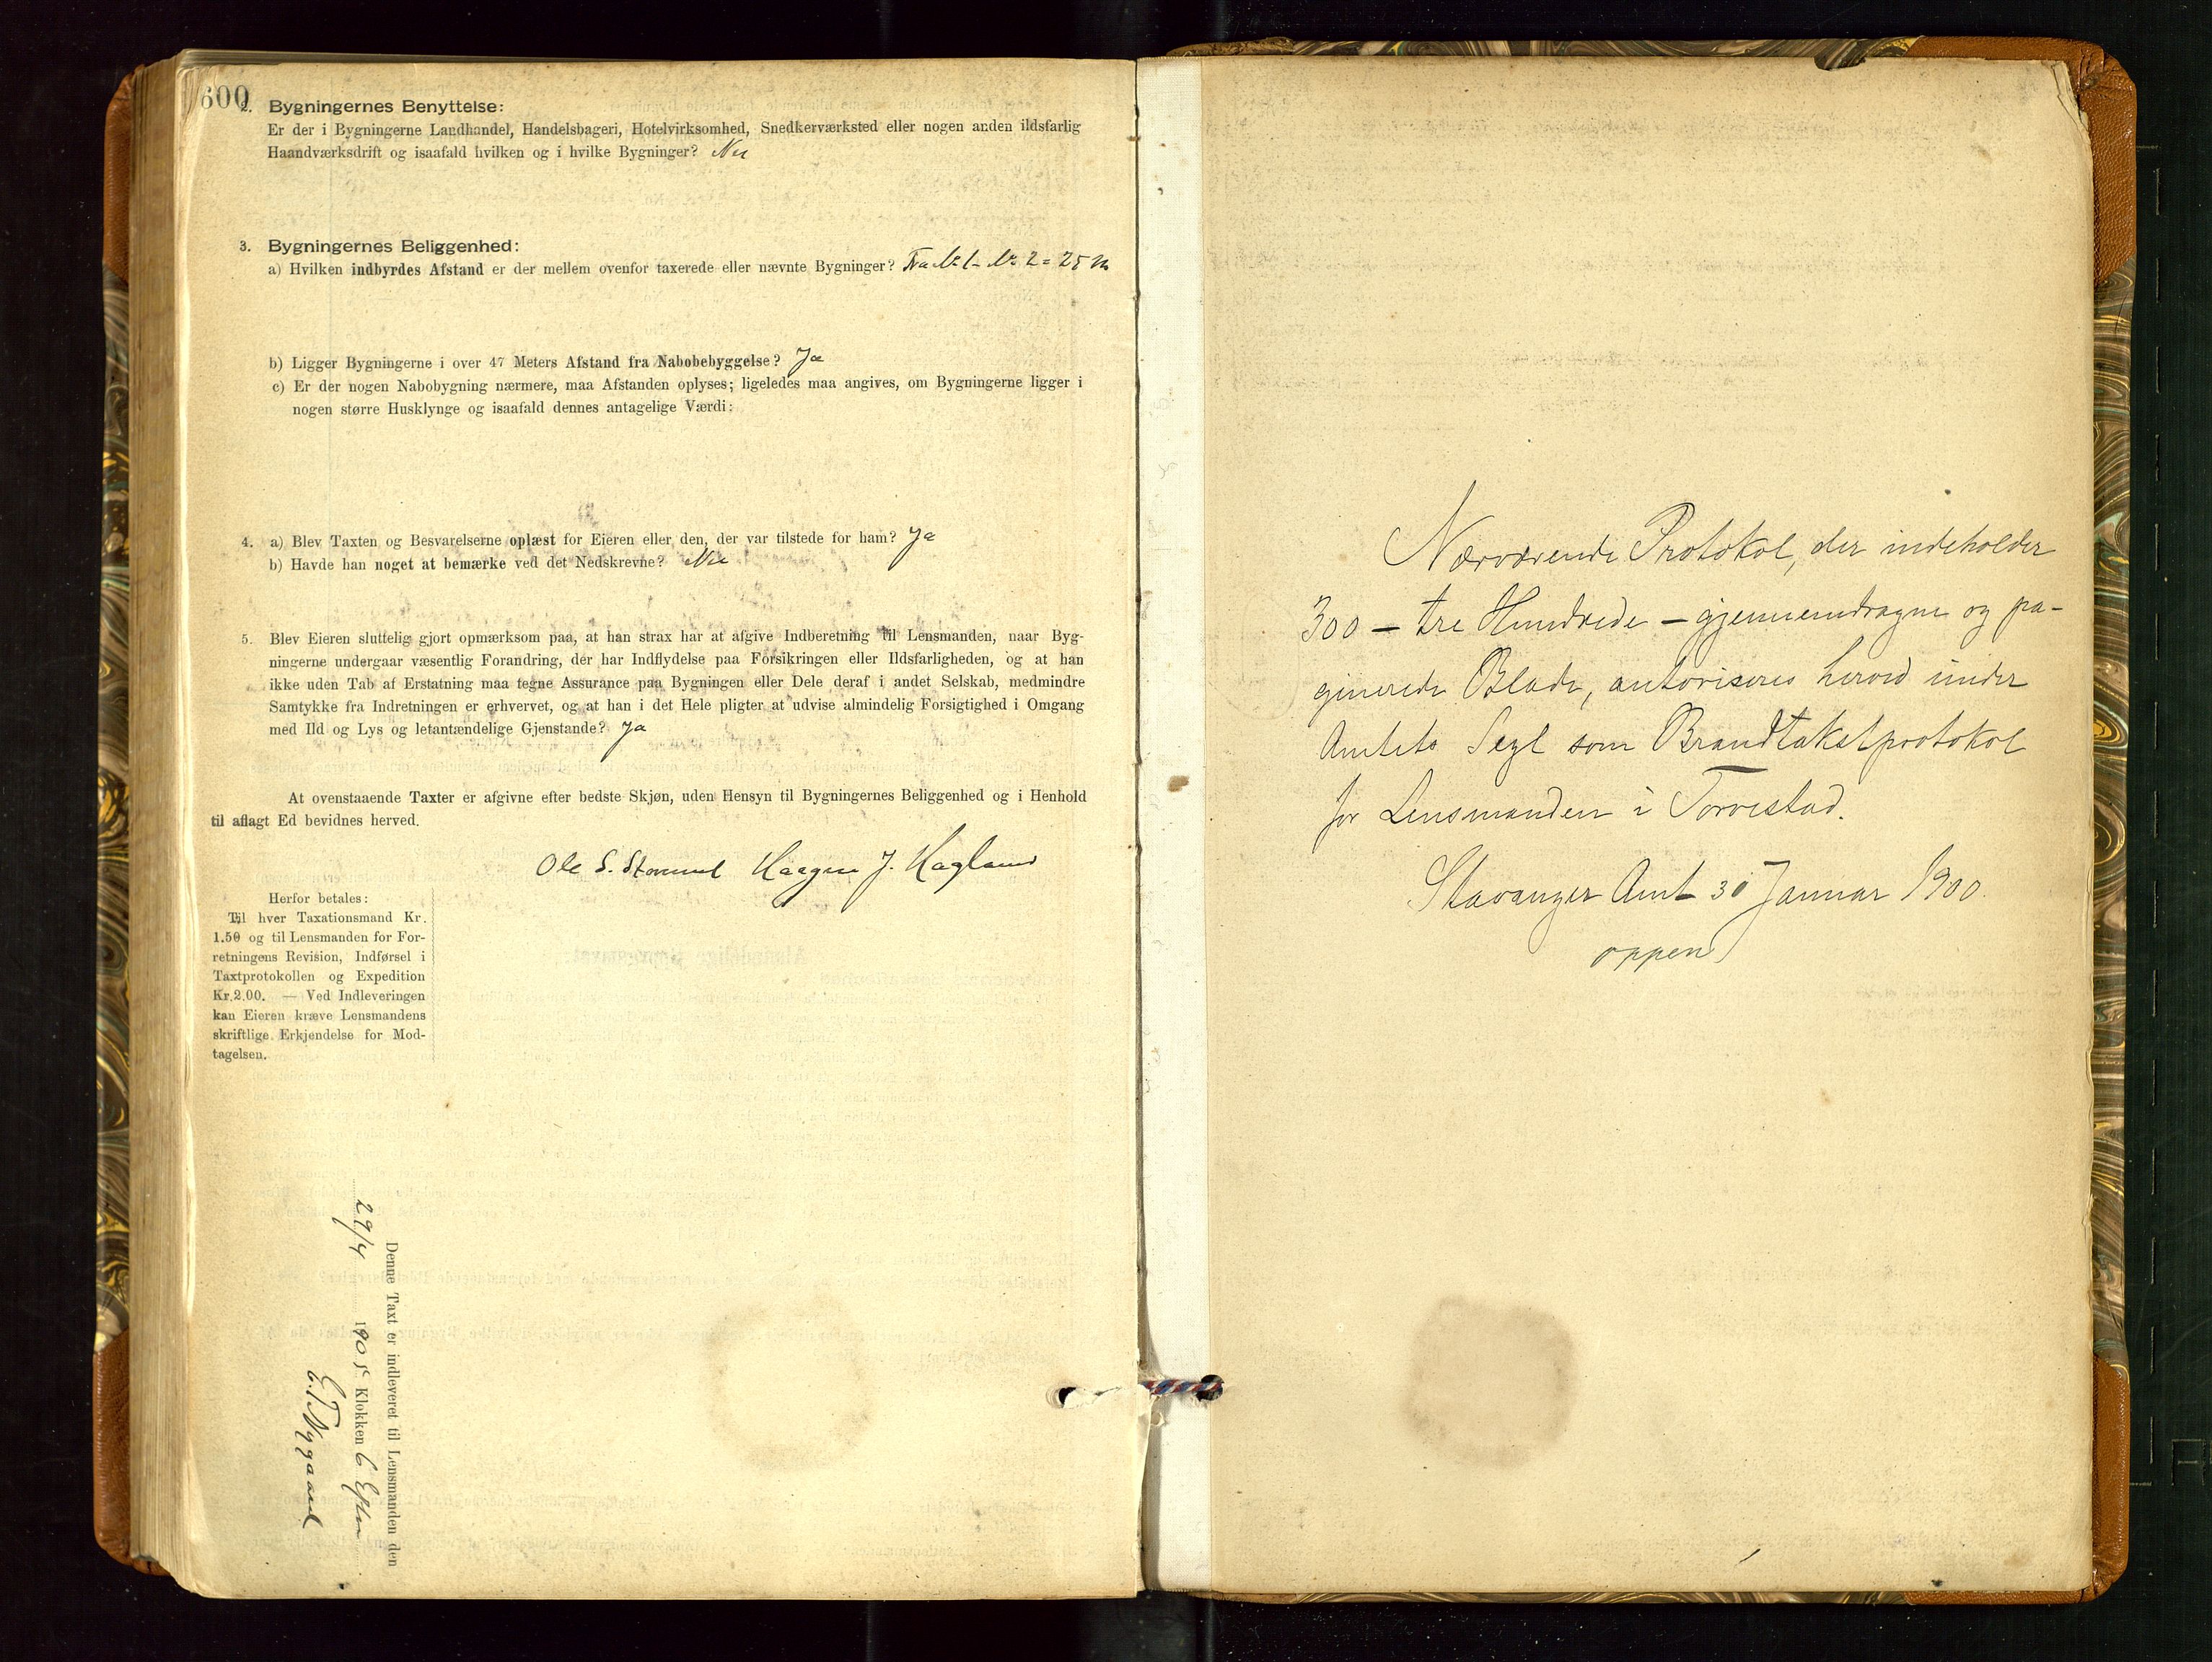 600
2. Bygningernes Benyttelse:
Er der i Bygningerne Landhandel, Handelsbageri, Hotelvirksomhed, Snedkerværksted eller nogen anden ildsfarlig
Haandværksdrift og isaafald hvilken og i hvilke Bygninger? Nei
3. Bygningernes Beliggenhed:
a) Hvilken indbyrdes Afstand er der mellem ovenfor taxerede eller nævnte Bygninger? Fra No 1 - No 2 = 25 m
b) Ligger Bygningerne i over 47 Meters Afstand fra Nabobebyggelse? Ja
c) Er der nogen Nabobygning nærmere, maa Afstanden oplyses; ligeledes maa angives, om Bygningerne ligger i
nogen større Husklynge og isaafald dennes antagelige Værdi:
4. a) Blev Taxten og Besvarelserne oplæst for Eieren eller den, der var tilstede for ham? Ja
b) Havde han noget at bemærke ved det Nedskrevne? Nei
5. Blev Eieren sluttelig gjort opmærksom paa, at han strax har at afgive Indberetning til Lensmanden, naar Byg-
ningerne undergaar væsentlig Forandring, der har Indflydelse paa Forsikringen eller Ildsfarligheden, og at han
ikke uden Tab af Erstatning maa tegne Assurance paa Bygningen eller Dele deraf i andet Selskab, medmindre
Samtykke fra Indretningen er erhvervet, og at han i det Hele pligter at udvise almindelig Forsigtighed i Omgang
med Ild og Lys og letantændelige Gjenstande? Ja
At ovenstaaende Taxter er afgivne efter bedste Skjøn, uden Hensyn til Bygningernes Beliggenhed og i Henhold
til aflagt Ed bevidnes herved.
Ole S. Haagen J. Hagland
Herfor betales:
Til hver Taxationsmand Kr.
1.50 og til Lensmanden for For-
retningens Revision, Indførsel i
Taxtprotokollen og Expedition
Kr.2.00. — Ved Indleveringen
kan Eieren kræve Lensmandens
skriftlige Erkjendelse for Mod-
tagelsen.
Denne Taxt er indleveret til Lensmanden den
29/4 1905 Klokken 6 Efterm
E. T. Nygaard
Nærværende Protokol, der indeholder
300 – tre Hundrede – gjennemdragne og pa-
ginerede Blade, autoriseres herved under
Amtets Segl som Brandtakstprotokol
for Lensmanden i Torvestad.
Stavanger Amt 30 Januar 1900.
oppen